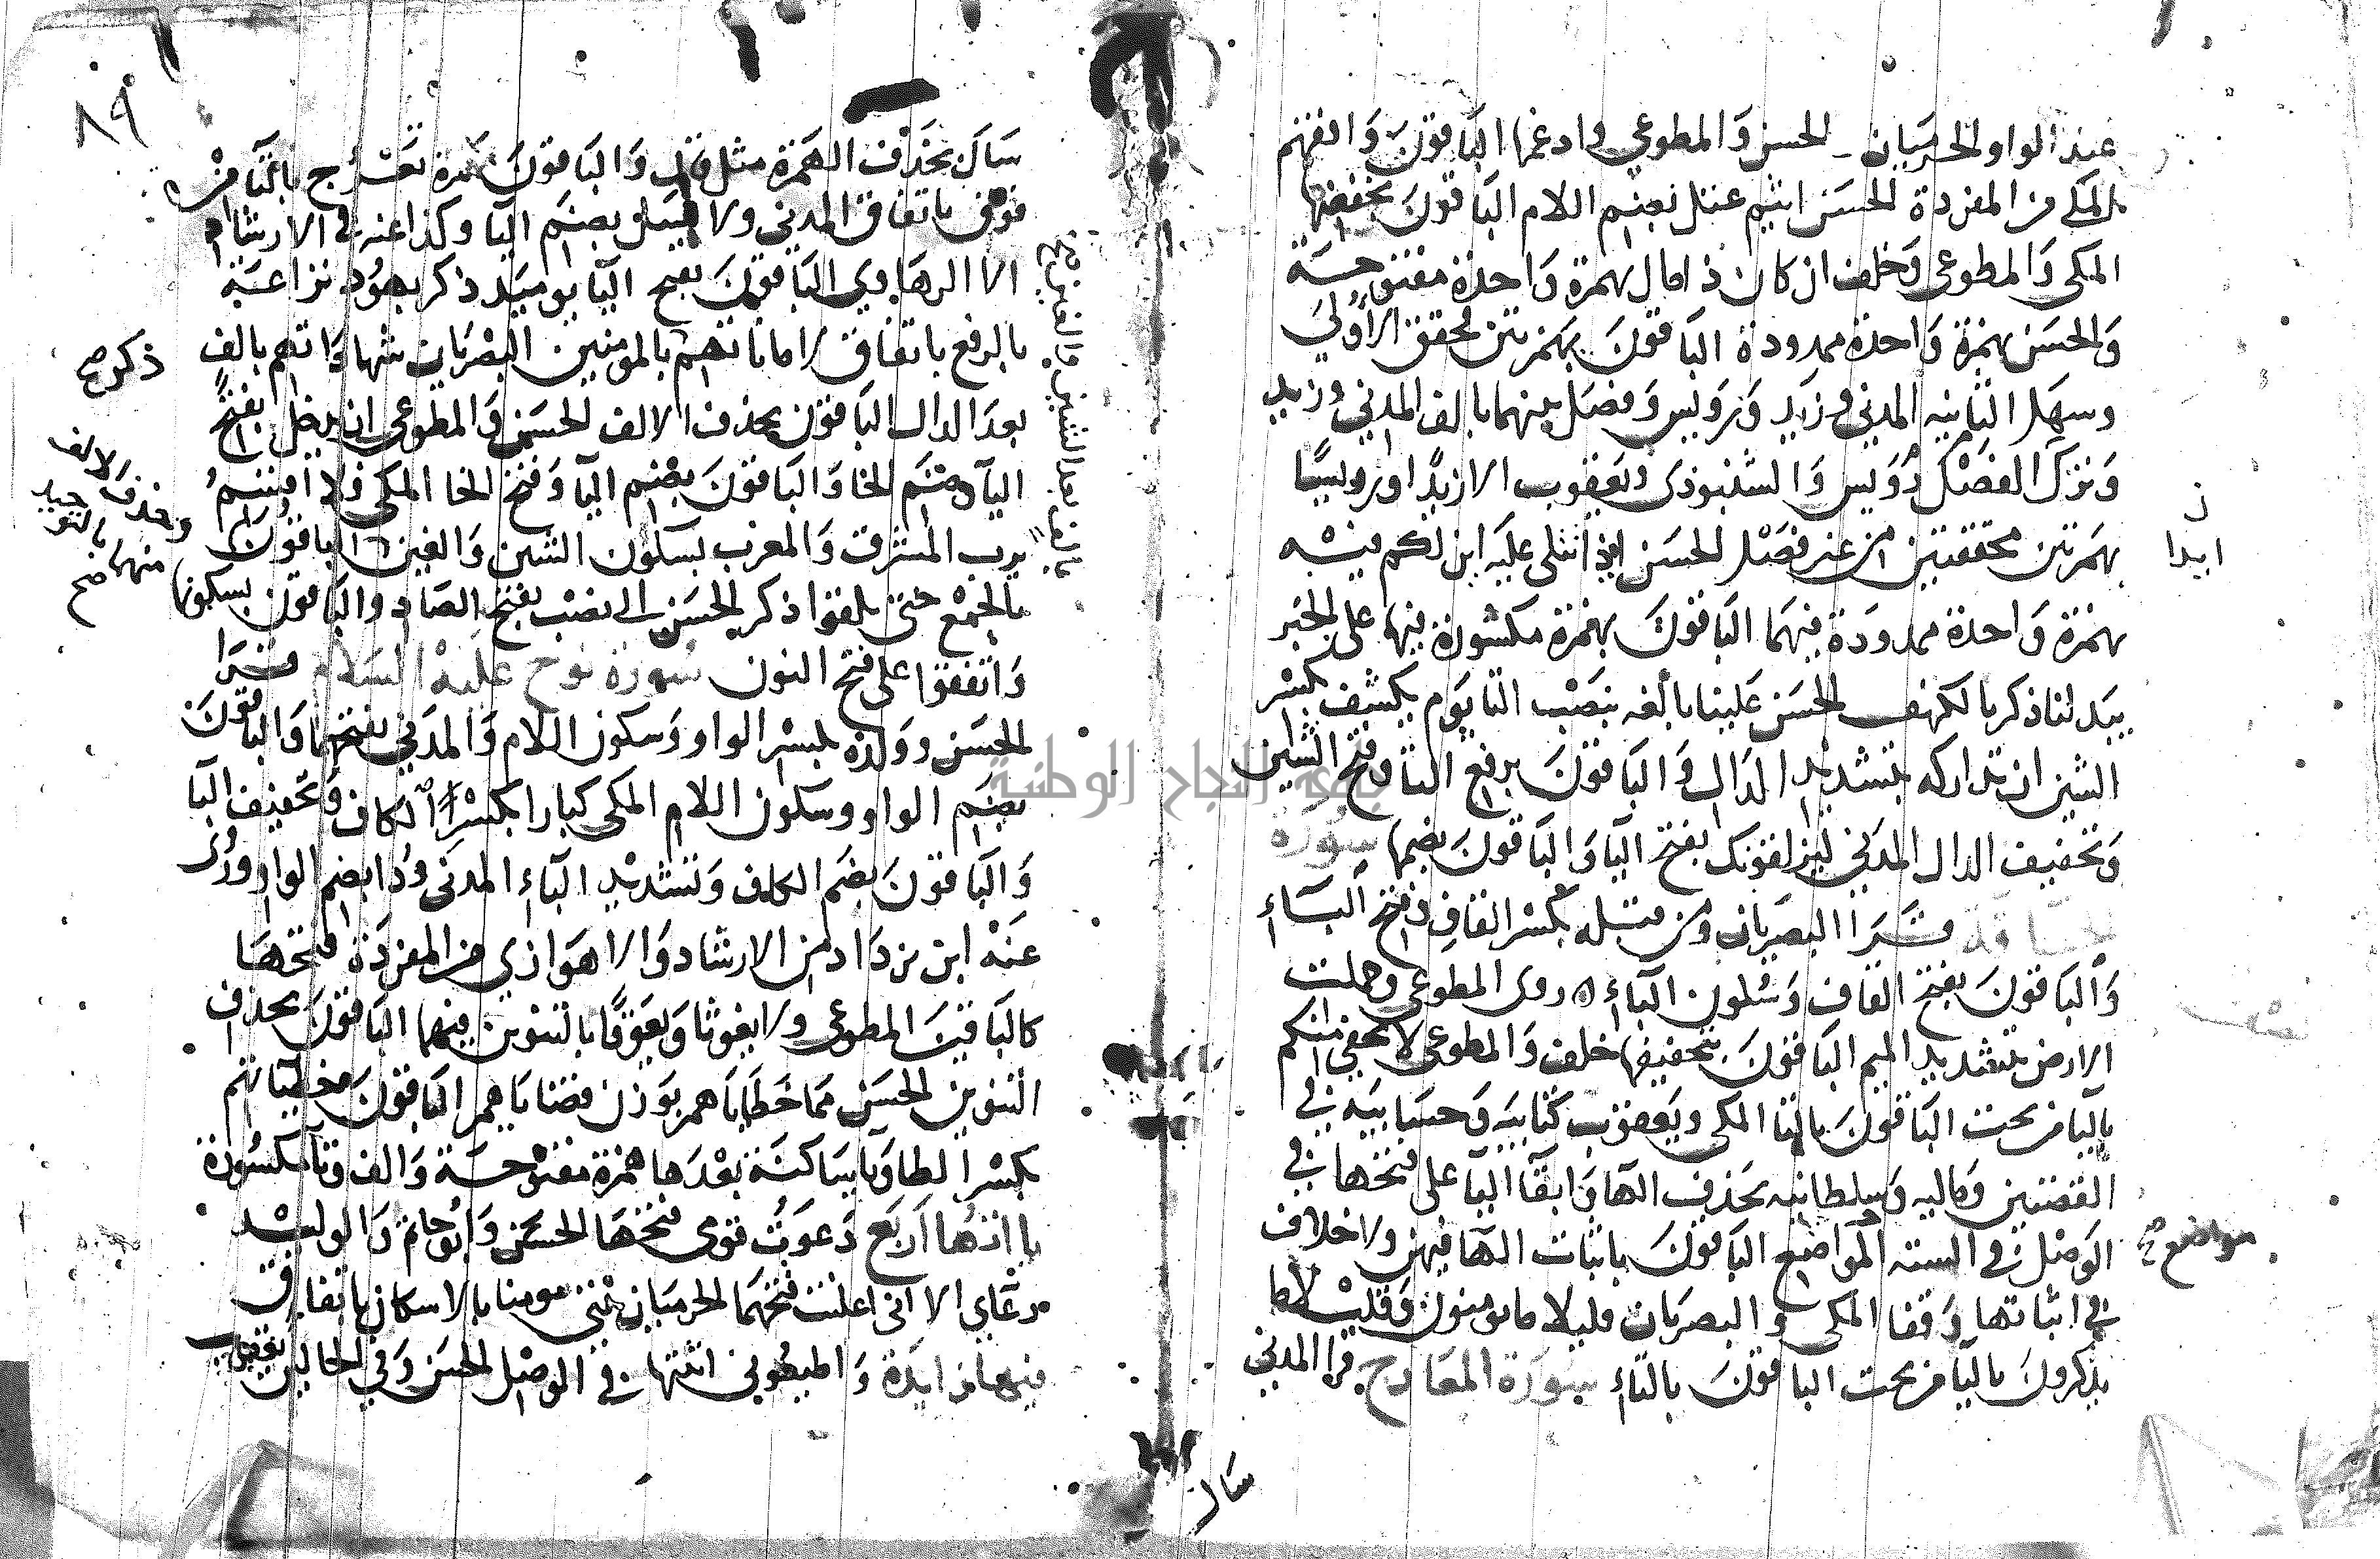 عند الواو الحرميان الحسن وَالمطوعي وادغمها البَاقونَ وَاتفقهم
المكي من المفردة الحسَن اثيم عتل بضم اللام البَاقونَ بخفضها
المكي وَالمطوعي وَخلف ان كان ذا مال بهمزة وَاحدة مفتوحَة
وَالحسَن بهمزة وَاحدة ممدودة البَاقونَ بهمزتين محقق الأولىَ
وسهل الثانيه المدني وزيد وَرويس وَفصَل بينهما بالف المدني وزيد
وَترك الفصْل رُوَيس وَالشنبوذي ويَعقوب الا زيدًا ورويسًا
بهمزتين محققتين من غير فصْل الحسَن ائذا تتلى عليَه اين لكم فيْه
بهمزة وَاحدة ممدودَة فيهمَا البَاقونَ بهمزة مكسُورة فيها على الخبَر
يبَدلنا ذكر بالكهف الحسَن عَلينا بالغه بنصْب التا يَوم يكشف بكسْر
الشين ان تداركه بتشديد الدال وَالبَاقونَ برفع التا وَفتح الشين
وَتخفيف الدال المدني ليزلقونك بفتح اليا وَالبَاقونَ بضمها سورَة
الحاقة قَرا البصريان ومن قبله بكسْر القاف وَفتح البَاءِ
وَالبَاقونَ بفتح القاف وَسُكون البآءِ ۵ روى المطوعي وحملت
الارض بتشديد الميم البَاقونَ بتخفيفها خلف وَالمطوعي لا يخفى منكم
باليا من تحت البَاقونَ بالتا المكي ويَعقوب كتابيَه وَحسَابيَه في
القصتين وَماليه وَسلطانيه بحَذف الهآ وَابقآ اليآ على فتحها في
الوَصْل في الستة المَواضع البَاقونَ باثبات الهآ فيهن ولا خلاف
في اثباتها وَقفا المكي وَالبصريان قليلا ما يومنون وَقليْلا ما
يذكرونَ باليآ من تحت الباقونَ بالتاءِ سورَة المعَارج قرا المدني
ابدا
مواضع صح
سَال
٨٩
سَالَ بحَذف الهَمزة مثل قال وَالبَاقونَ بهمزة تعْرُج باليآ من
فوق باتفاق المدني ولا يسَل بضَم اليا وكذا عنه في الارشاد
الا الرهَاوي البَاقونَ بفتح اليآ يوميَذ ذكر بهوُد نزاعَة
بالرفع باتفاق لاماناتهم بالمومنين البصْريان شهادَاتهم بالف
بعدَ الدال البَاقون بحذف الالف الحسَن وَالمطوعي ان يدخل بفتح
اليآ وضَم الخا وَالبَاقونَ بضْم اليآ وَفتح الخا المكي فلا اقسمُ
برب المشرق وَالمغرب بسكون الشين وَالغين البَاقون
بالجمْع حتى يلقوا ذكر الحسَن الى نصْب بفتح الصَاد والبَاقون بسكونها
وَاتفقوا على فتح النون سُورَة نوح عليْه السَلام قَرا
الحسَن وولده بكسْر الواو وَسكون اللام وَالمدَني بفتحهما وَالباقونَ
بضَم الواو وسكون اللام المكي كبارا بكسْر الكاف وَتخفيف البآ
وَالبَاقونَ بضَم الكاف وَتشديْد البآءِ المدنَي وُدا بضم الواو وروُى
عَنه ابن يزدَاد من الارشاد وَالاهوَازي من المفردَة فتحهَا
كالبَاقينَ المطوعي ولا يغوثا وَيعَوقًا بالتنوين فيهما البَاقونَ بحذف
التنوين الحسَن ممَا خَطَايَاهم بوَزن قضايَاهم البَاقونَ خطيئاتهم
بكسْر الطا وَيا سَاكنَة بعْدَها همزة مفتوحَة وَالف وَتآ مكسُورة
يااتهَا اربَع دَعوَتُ قومي فتحهَا الحسَن وَابُو حاتم وَالوليْد
دعَآي الا اني اعلنت فتحَهمَا الحرميَان بيتي مومنا بالاسكان باتفاق
فيها زايدَة وَاطيعُوني اثبتها في الوصْل الحسَن وَفي الحالين يعقوب
ذكر صح
وحذف الالف
منهما
صح
بالف بعد الشين والغين صح
جامعة النجاح الوطنية